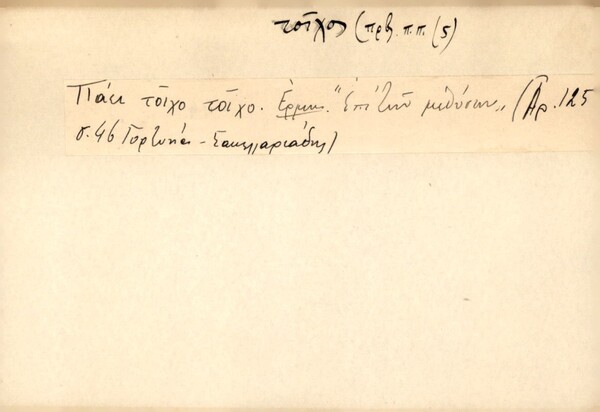 τοῖχος (πρβ. π.π. (5)
Πάει τοῖχο τοῖχο. Ἑρμην. "Ἐπὶ τῶν μεθύσων„ (Ἀρ. 125
σ. 46 Γορτυνία - Σακελλαριάδης)